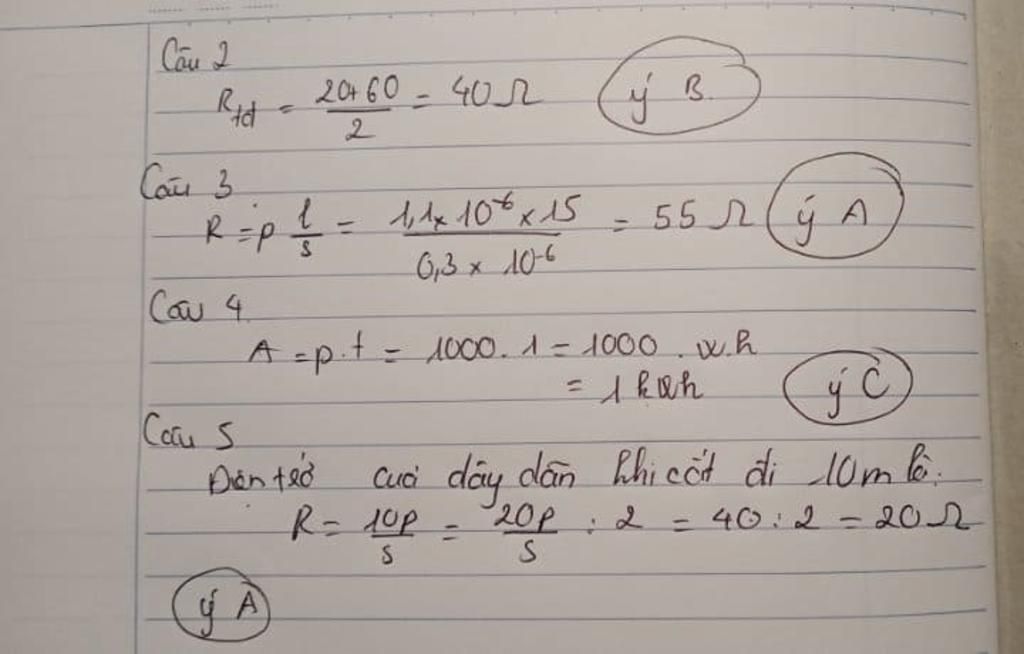 Câu 2
Rtđ = 20+60/2 = 40Ω ý B.
Câu 3
R = p l/s = 1,1 x 10⁻⁶ x 15 / 0,3 x 10⁻⁶ = 55 Ω ý A
Câu 4
A = p.t = 1000.1 = 1000 . w.h
= 1 kwh ý C
Câu 5
Điện trở của dây dẫn khi cắt đi 10m là:
R = 10p/s = 20p/s : 2 = 40 : 2 = 20Ω
ý A